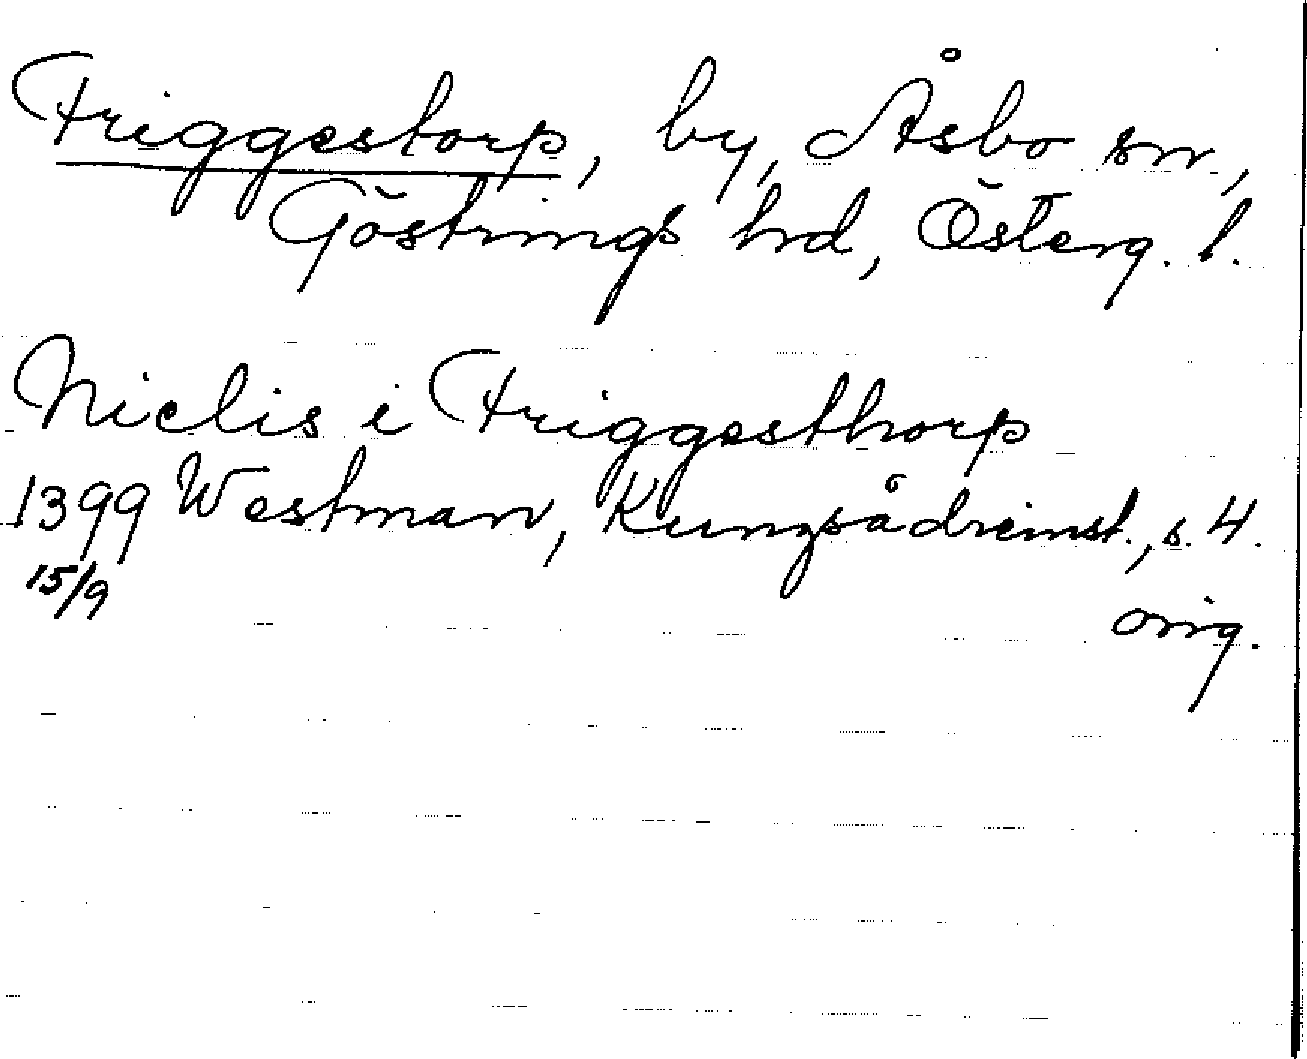 Friggestorp, by, Åsbo sn,
Göstrings hrd, Österg. l.
Niclis i Friggesthorp
1399 Westman, Kungsådreinst., s. 4.
15/9 orig.